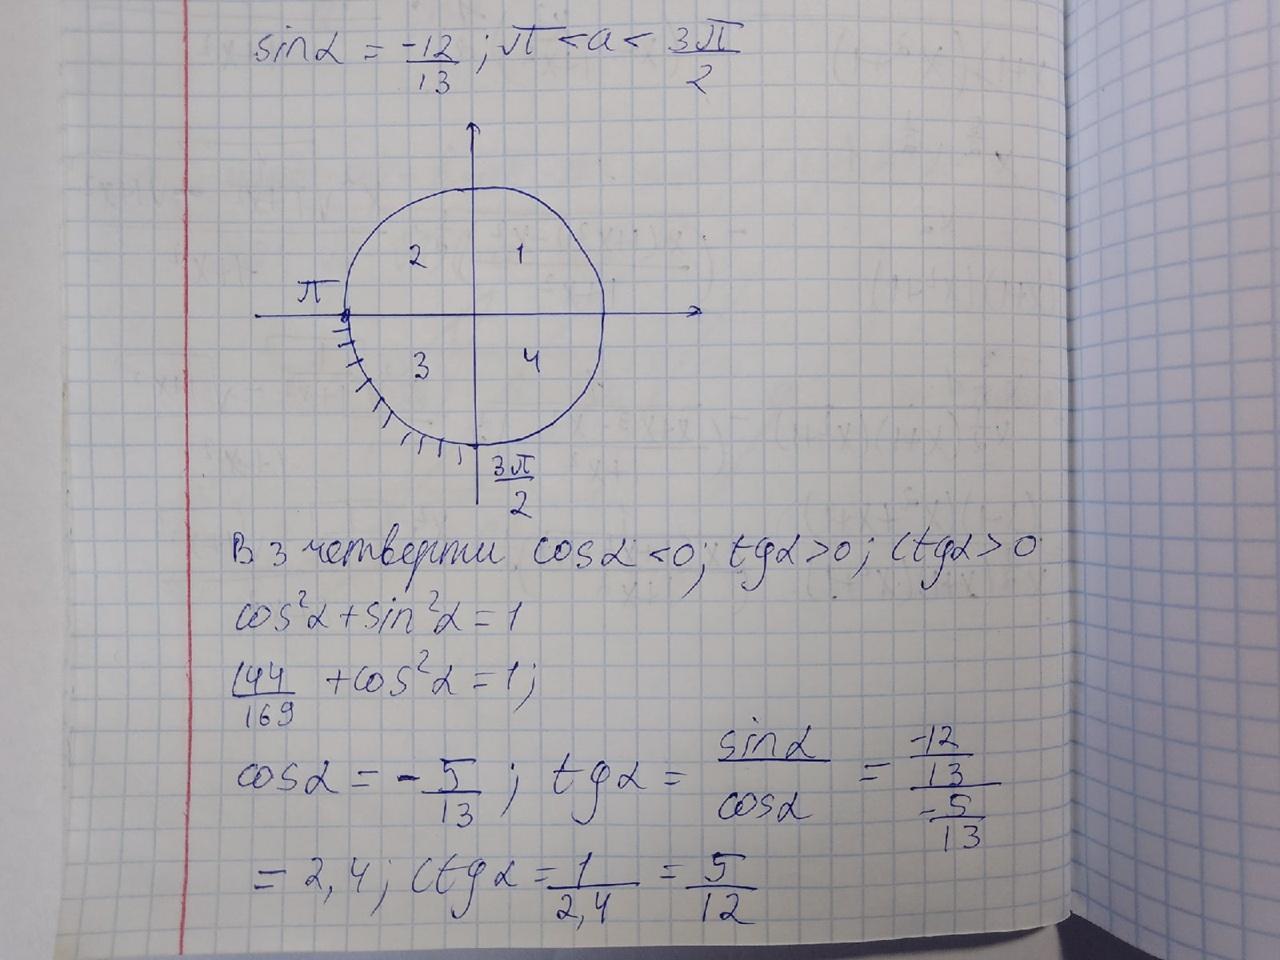 sinα = -12/13 ; π < a < 3π/2
2 1
π
3 4
3π/2
В 3 четверти cosα <0; tgα >0; ctgα > 0
cos²α + sin²α = 1
144/169 + cos²α = 1;
cosα = - 5/13 ; tgα = sinα/cosα = (-12/13)/(-5/13)
= 2,4; ctgα = 1/2,4 = 5/12